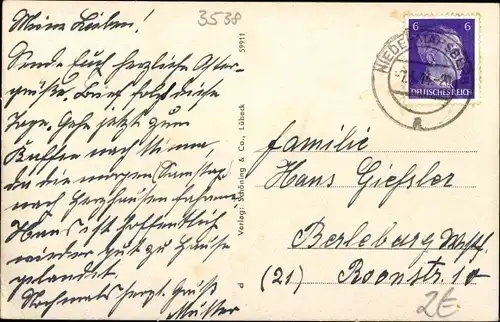 Meine Lieben!
3538
Sende Euch herzliche Oster-
grüße. Brief folgt diese
Tage. Gehe jetzt zum
Kaffee nach
da die morgen Samstag
nach Herzhausen fahren.
Hans ist hoffentlich
wieder gut zu Hause
gelandet.
Nochmals herzl. Grüße
Mutter
d Verlag: Schöning & Co., Lübeck 59911
6 6
DEUTSCHES REICH
a
Familie
Hans Gießler
Berleburg Westf.
(21) Roonstr. 10
2E